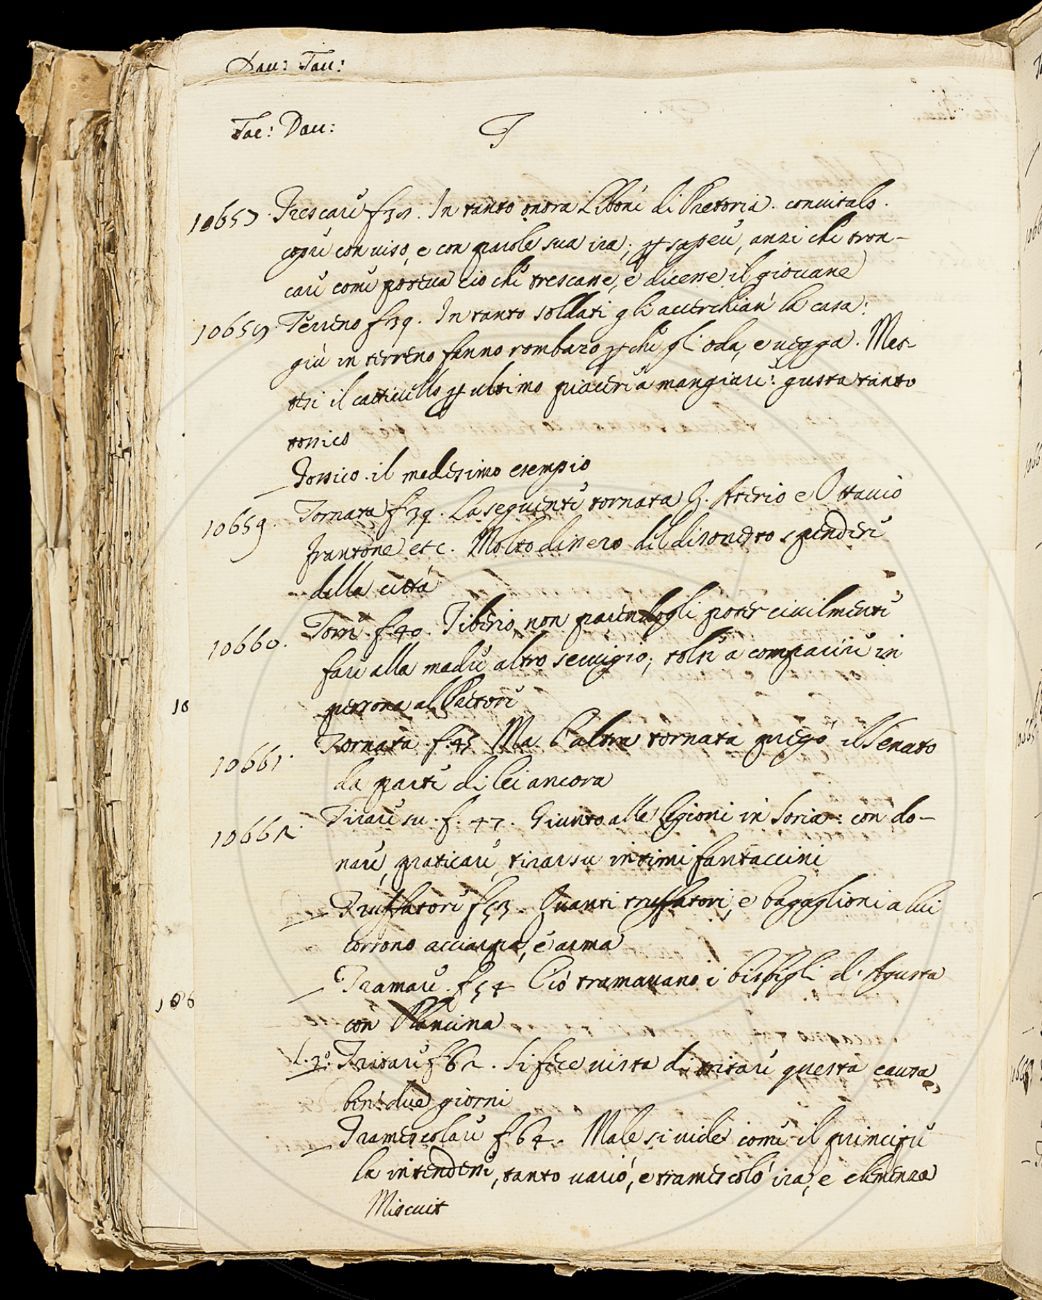 Dau: Tau:
Tac: Dau: T
10657. Trescare f. 39. In tanto onora Libone di Pretoria. convitalo.
copre con viso, e con parole sua ira; per sapere, anzi che tron-
care come poteva ciò che trescare, e dicesse il giovane
10658. Terreno f. 39. In tanto soldati gli accerchian' la casa:
giù in terreno fanno rombazo perche gl'oda, e vegga. Met-
tesi il cattivello per ultimo piacere a mangiare: gusta tanto
tossico
— Tossico. il medesimo esempio
10659. Tornata f. 39. La seguente tornata Q. Aterio e Ottavio
Frantone etc. Molto dissero del disonesto spendere
della città
10660. Torre. f. 40. Tiberio non parendogli poter civilmente
fare alla madre altro servigio, tolse a comparire in
persona al Pretore
10
10661. Tornata. f. 45. Ma l'altra tornata pregò il Senato
da parte di lei ancora
10662. Tirare su. f. 47. Giunto alle legioni in Soria: con do-
nare, praticare, tirar su intimi fantaccini
— Truffatori f. 53. Quanti truffatori, e bagaglioni a lui
corrono acciarpa, e arma
— Tramare. f. 54 Ciò tramavano i bisbigli d'Agusta
con Plancina
106
L. 3°: Tritare f. 62. Si fece vista di tritare questa causa
ben' due giorni
— Tramescolare f. 64. Male si vide come il principe
la intendesse, tanto variò, e tramescolò ira, e clemenza
Miscuit